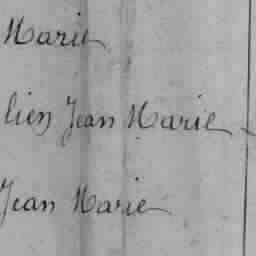 Marie
lien Jean Marie
Jean Marie